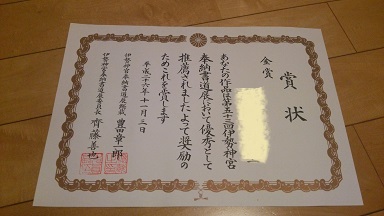 賞状
金賞
あなたの作品は第五十三回伊勢神宮
奉納書道展において優秀として
推薦されましたよって奨励の
ためこれを賞します
平成二十八年十一月三日
伊勢神宮奉納書道展総裁 豊田章一郎
伊勢神宮奉納書道展委員長 齊藤善也